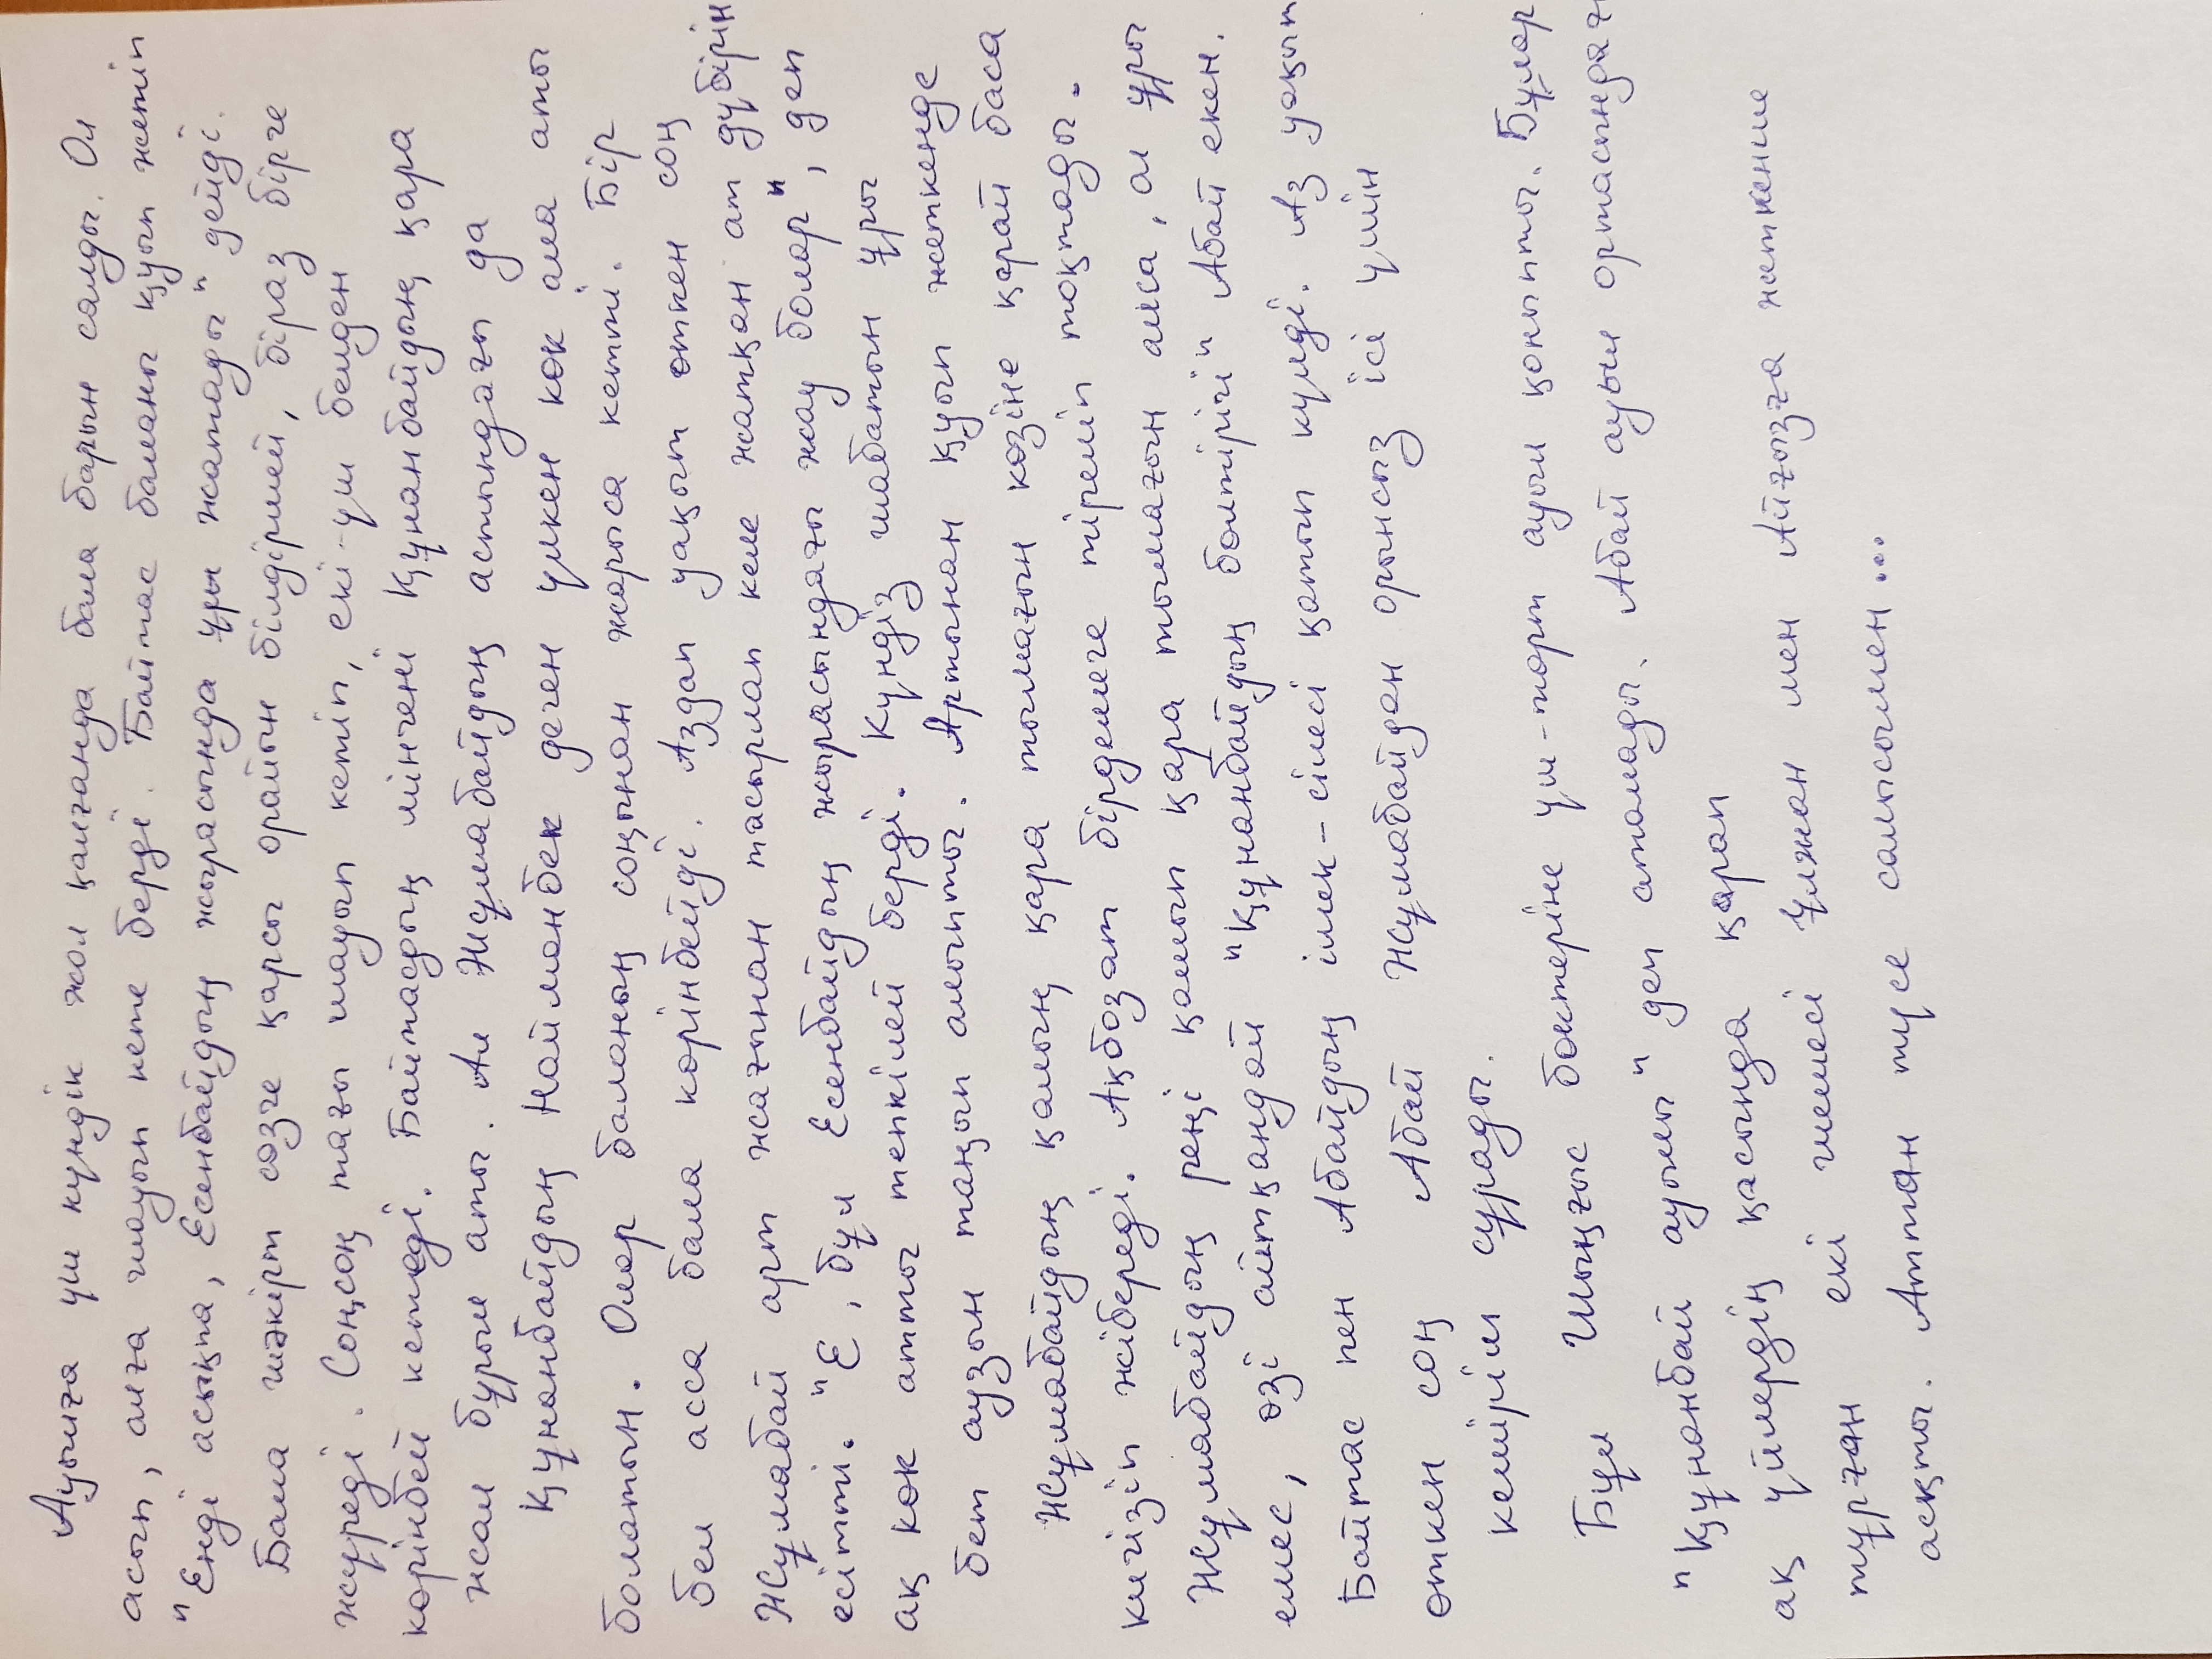 Ауылға үш күндік жол қалғанда бала барын салды. Ол
асып, алға шауып кете берді. Байтас баланы қуып жетіп
"Енді асықпа, Есенбайдың жырасында ұры жатады" дейді.
Бала шәкірт сөзге қарсы орайын білдірмей, біраз бірге
жүреді. Соңсоң тағы шауып кетіп, екі-үш белден
көрінбей кетеді. Байтасдың мінгені Құнанбайдың қара
жал бурыл аты. Ал Жұмабайдың астындағы да
Құнанбайдың Найманбек деген үлкен көк ала аты
болатын. Олар баланың соңынан жарыса кетті. Бір
бел асса бала көрінбейді. Аздап уақыт өткен соң
Жұмабай арт жағынан тасырлап келе жатқан ат дүбірін
есітті. "Е, бұл Есенбайдың жырасындағы жау болар", деп
ақ көк атты тепкілей берді. Күндіз шабатын ұры
бет аузын таңып алыпты. Артынан қуып жеткенде
Жұмабайдың қалың қара тымағын көзіне қарай баса
кигізіп жібереді. Ақбозат бірдемеге тіреліп тоқтады.
Жұмабайдың реңі қашып қара тымағын алса, ол ұры
емес, өзі айтқандай "Құнанбайдың бөлтірігі" Абай екен.
Байтас пен Абайдың ішек-сілесі қатып күлді. Аз уақыт
өткен соң Абай Жұмабайдан орынсыз ісі үшін
кешірім сұрады.
Бұл Шыңғыс бөктеріне үш-төрт ауыл қоныпты. Бұлар
"Құнанбай ауылы" деп аталады. Абай ауыл ортасындағы
ақ үйлердің қасында қарап
тұрған екі шешесі Ұлжан мен Айғызға жеткенше
асқты. Аттан түсе салысымен...